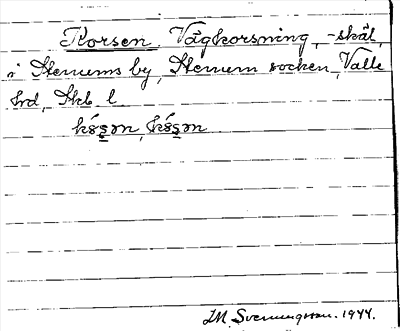 Korsen Vägkorsning, -skäl,
i Stenums by, Stenum socken, Valle
hrd, Skb. l.
kó̜s̱ən, kó̜s̱ən
M. Svenungsson. 1944.